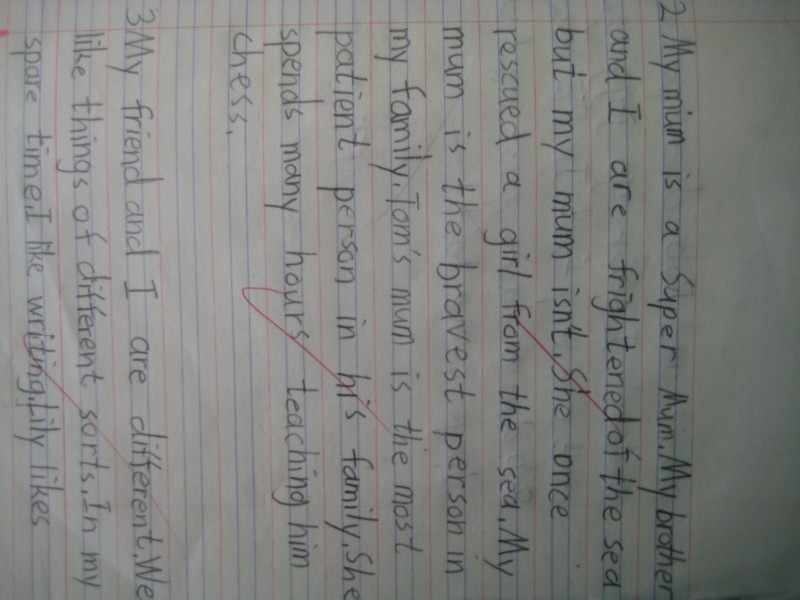 2 My mum is a Super Mum. My brother
and I are frightened of the sea
but my mum isn't. She once
rescued a girl from the sea. My
mum is the bravest person in
my family. Tom's mum is the most
patient person in his family. She
spends many hours teaching him
chess.
3 My friend and I are different. We
like things of different sorts. In my
spare time. I like writing. Lily likes